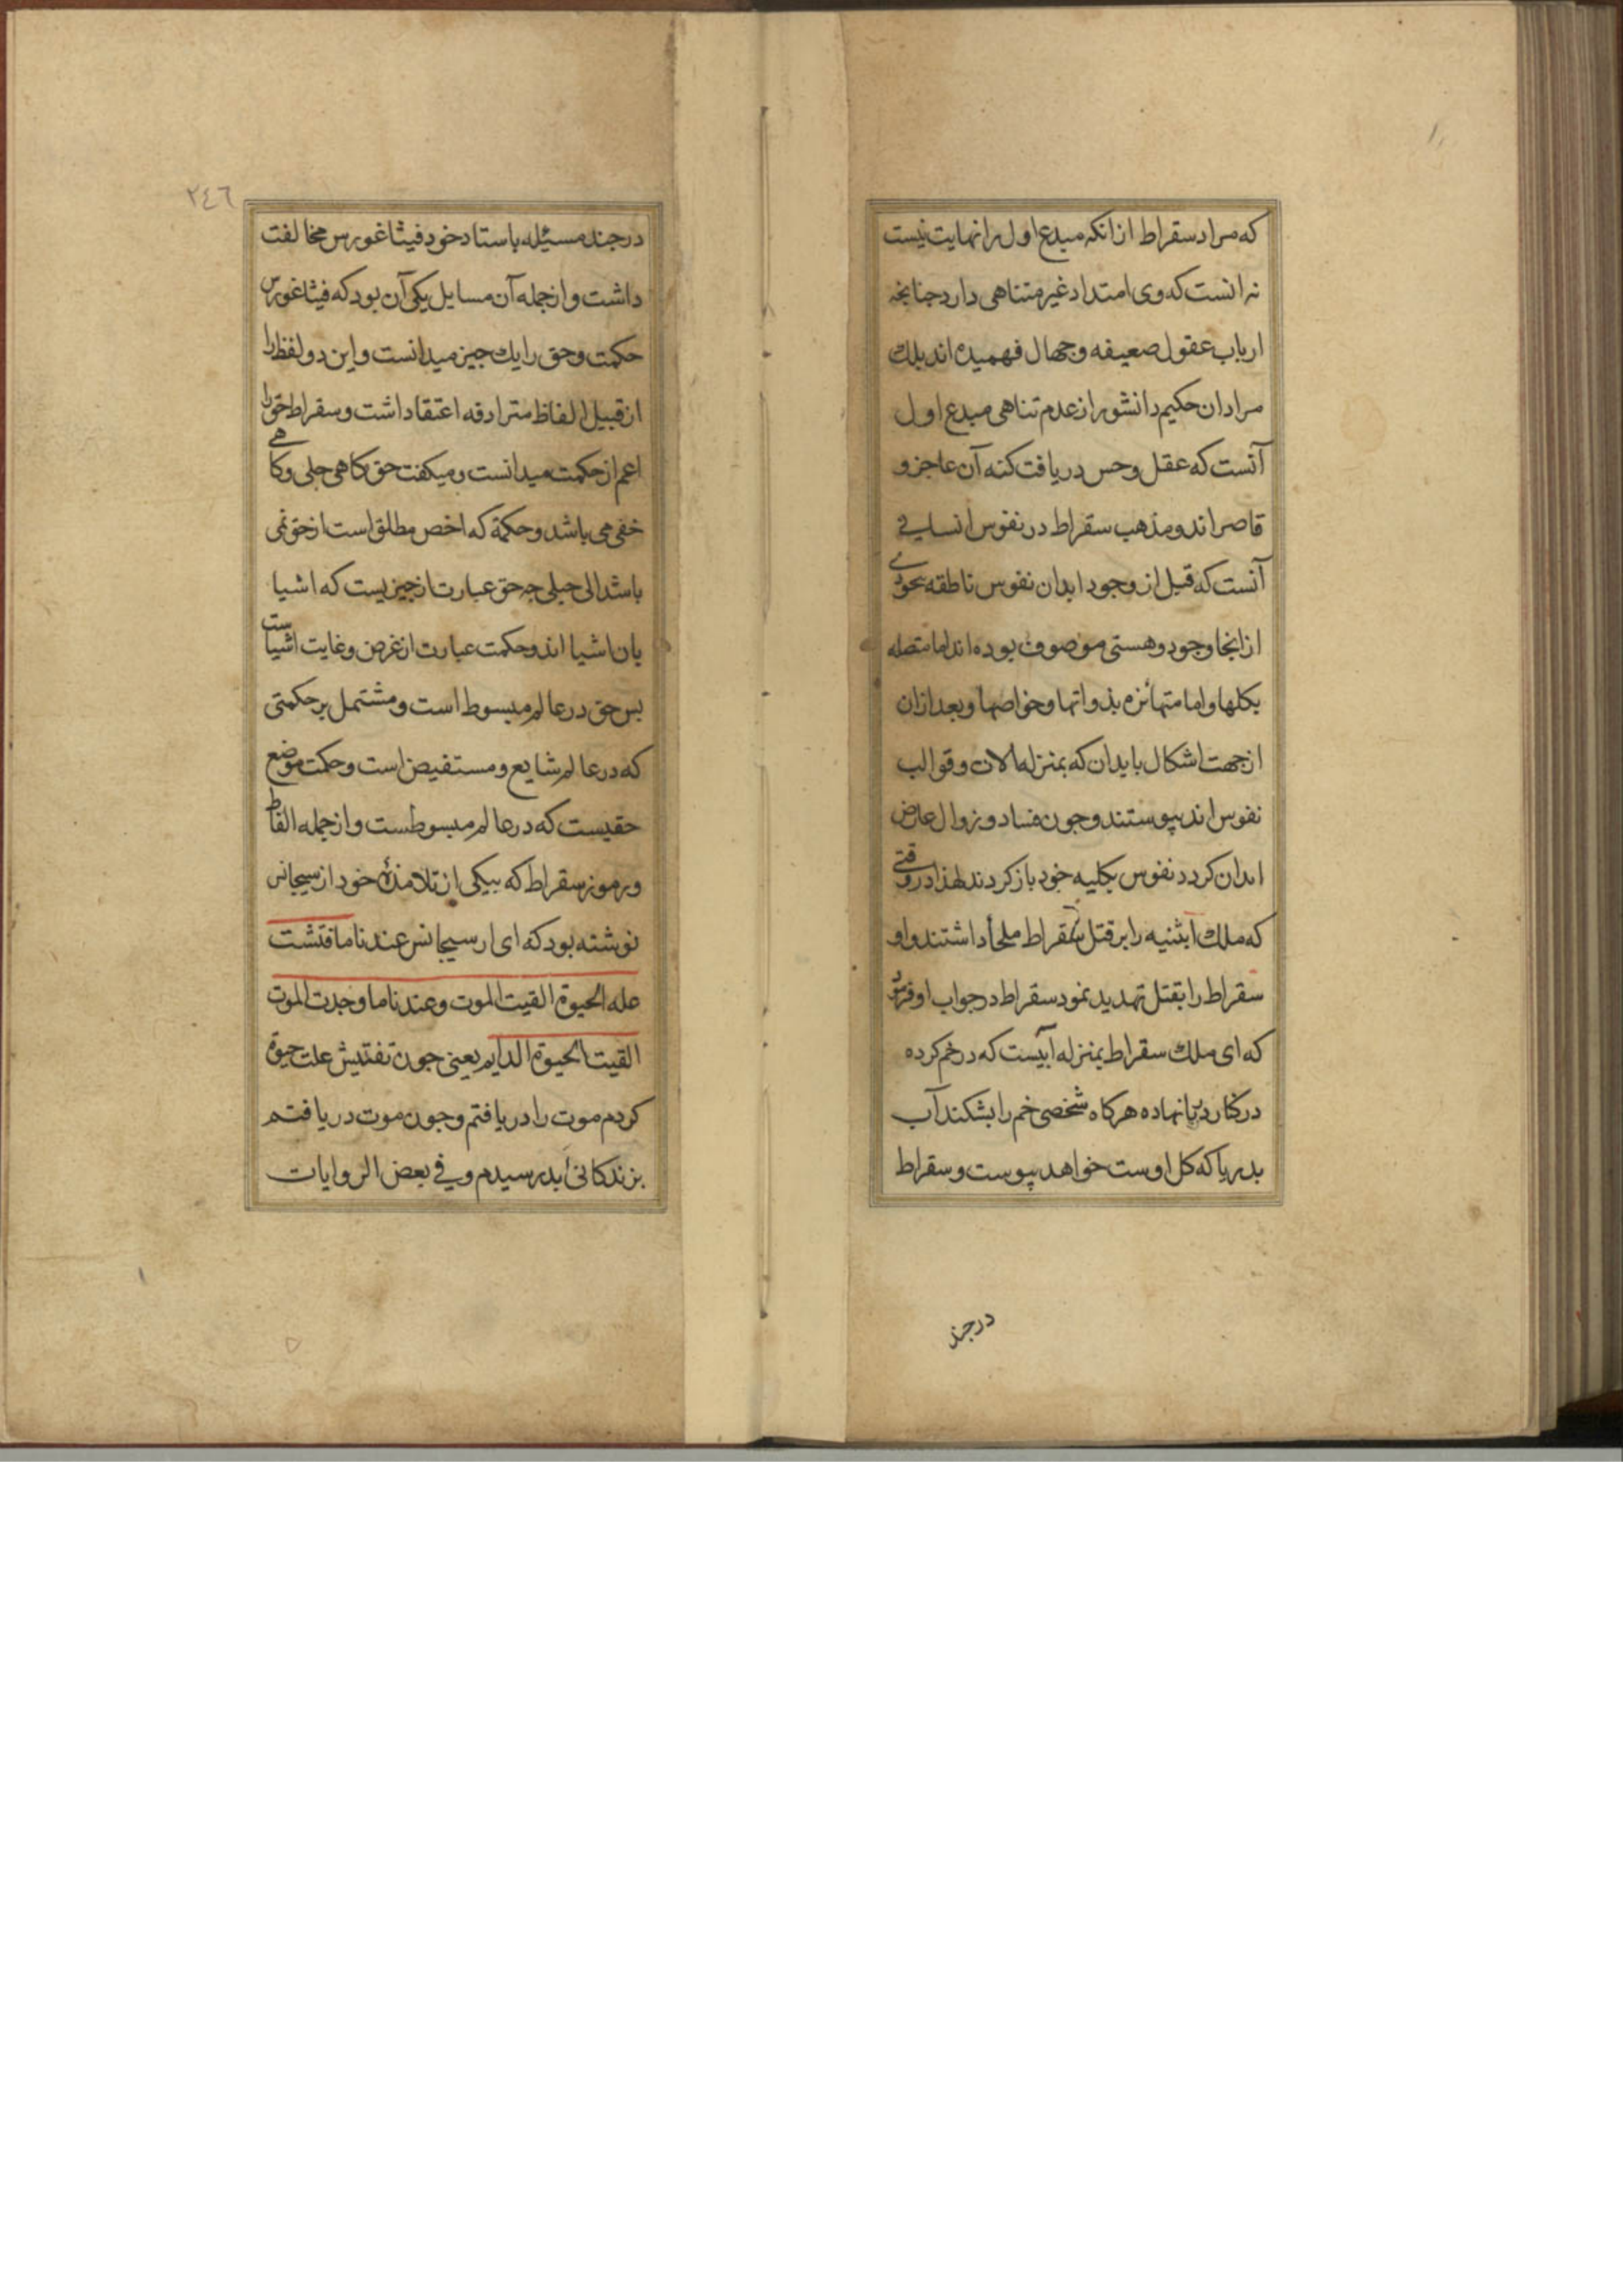 که مراد سقراط ازانکه مبدع اول را نهایت نیست
نه انست که وی امتداد غیر متناهی دارد جنانجه
ارباب عقول ضعیفه و جهال فهمیده اند بلك
مراد ان حکیم دانشور از عدم تناهی مبدع اول
آنست که عقل و حس دریافت کنه آن عاجز و
قاصر اند و مذهب سقراط در نفوس انسانی
آنست که قبل از وجود ابدان نفوس ناطقه بحوی
از انجا وجود و هستی موصوف بوده اند اما متصله
بکلها و اما متهائزه بذواتها و خواصها و بعد ازان
ازجهت اشکال بابدان که بمنزله الات و قوالب
نفوس اند پیوستند و جون فساد و زوال عارض
ابدان کردد نفوس بکلیه خود باز کردند لهذا در وقتی
که ملك اثینیه را بر قتل سقراط ملجأ داشتند و او
سقراط را بقتل تهدید نمود سقراط در جواب او فرمود
که ای ملك سقراط بمنزله آبیست که در خم کرده
در کنار دریا نهاده هرکاه شخصی خم را بشکند آب
بدریا که کل اوست خواهد پیوست و سقراط
درجند
٢٤٦
درجند مسئله باستاد خود فیثاغورس مخالفت
داشت و ازجمله آن مسایل یکی آن بود که فیثاغورس
حکمت و حق را یك جیز میدانست و این دو لفظ را
از قبیل الفاظ مترادفه اعتقاد داشت و سقراط حق را
اعم از حکمت میدانست و میکفت حق کاهی جلی و کاهی
خفی می باشد و حکمة که اخص مطلق است از حق نمی
باشد الی جلی جه حق عبارت از جیزیست که اشیا
بان اشیا اند و حکمت عبارت از غرض و غایت اشیاست
بس حق در عالم مبسوط است و مشتمل بر حکمتی
که در عالم شایع و مستفیض است و حکمت موضع
حقیست که در عالم مبسوطست و ازجمله الفاظ
و رموز سقراط که بیکی از تلامذهٔ خود ارسیجانس
نوشته بود که ای ارسیجانس عندنا ما فتشت
عله الحیوة القیت الموت و عندنا ما وجدت الموت
القیت الحیوة الدایم یعنی جون تفتیش علت حیوة
کردم موت را دریافتم و جون موت دریافتم
بزندکانی ابد رسیدم و فی بعض الروایات